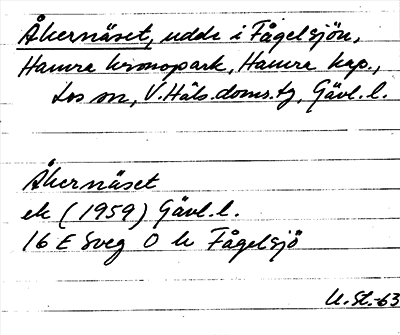 Åkernäset, udde i Fågelsjön,
Hamra kronopark, Hamra kap.,
Los sn, V. Häls. doms. tg, Gävl. l.
Åkernäset
ek (1959) Gävl. l.
16 E Sveg 0 h Fågelsjö
U. St.-63